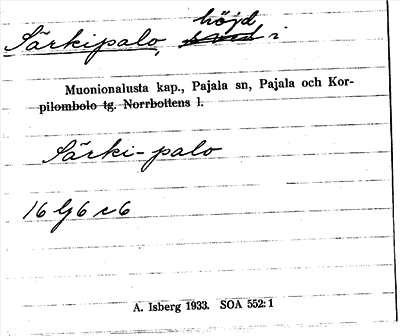 Särkipalo, höjd i
Muonionalusta kap., Pajala sn, Pajala och Kor-
pilombolo tg. Norrbottens l.
Särki-palo
16 g 6 c 6
A. Isberg 1933. SOA 552:1